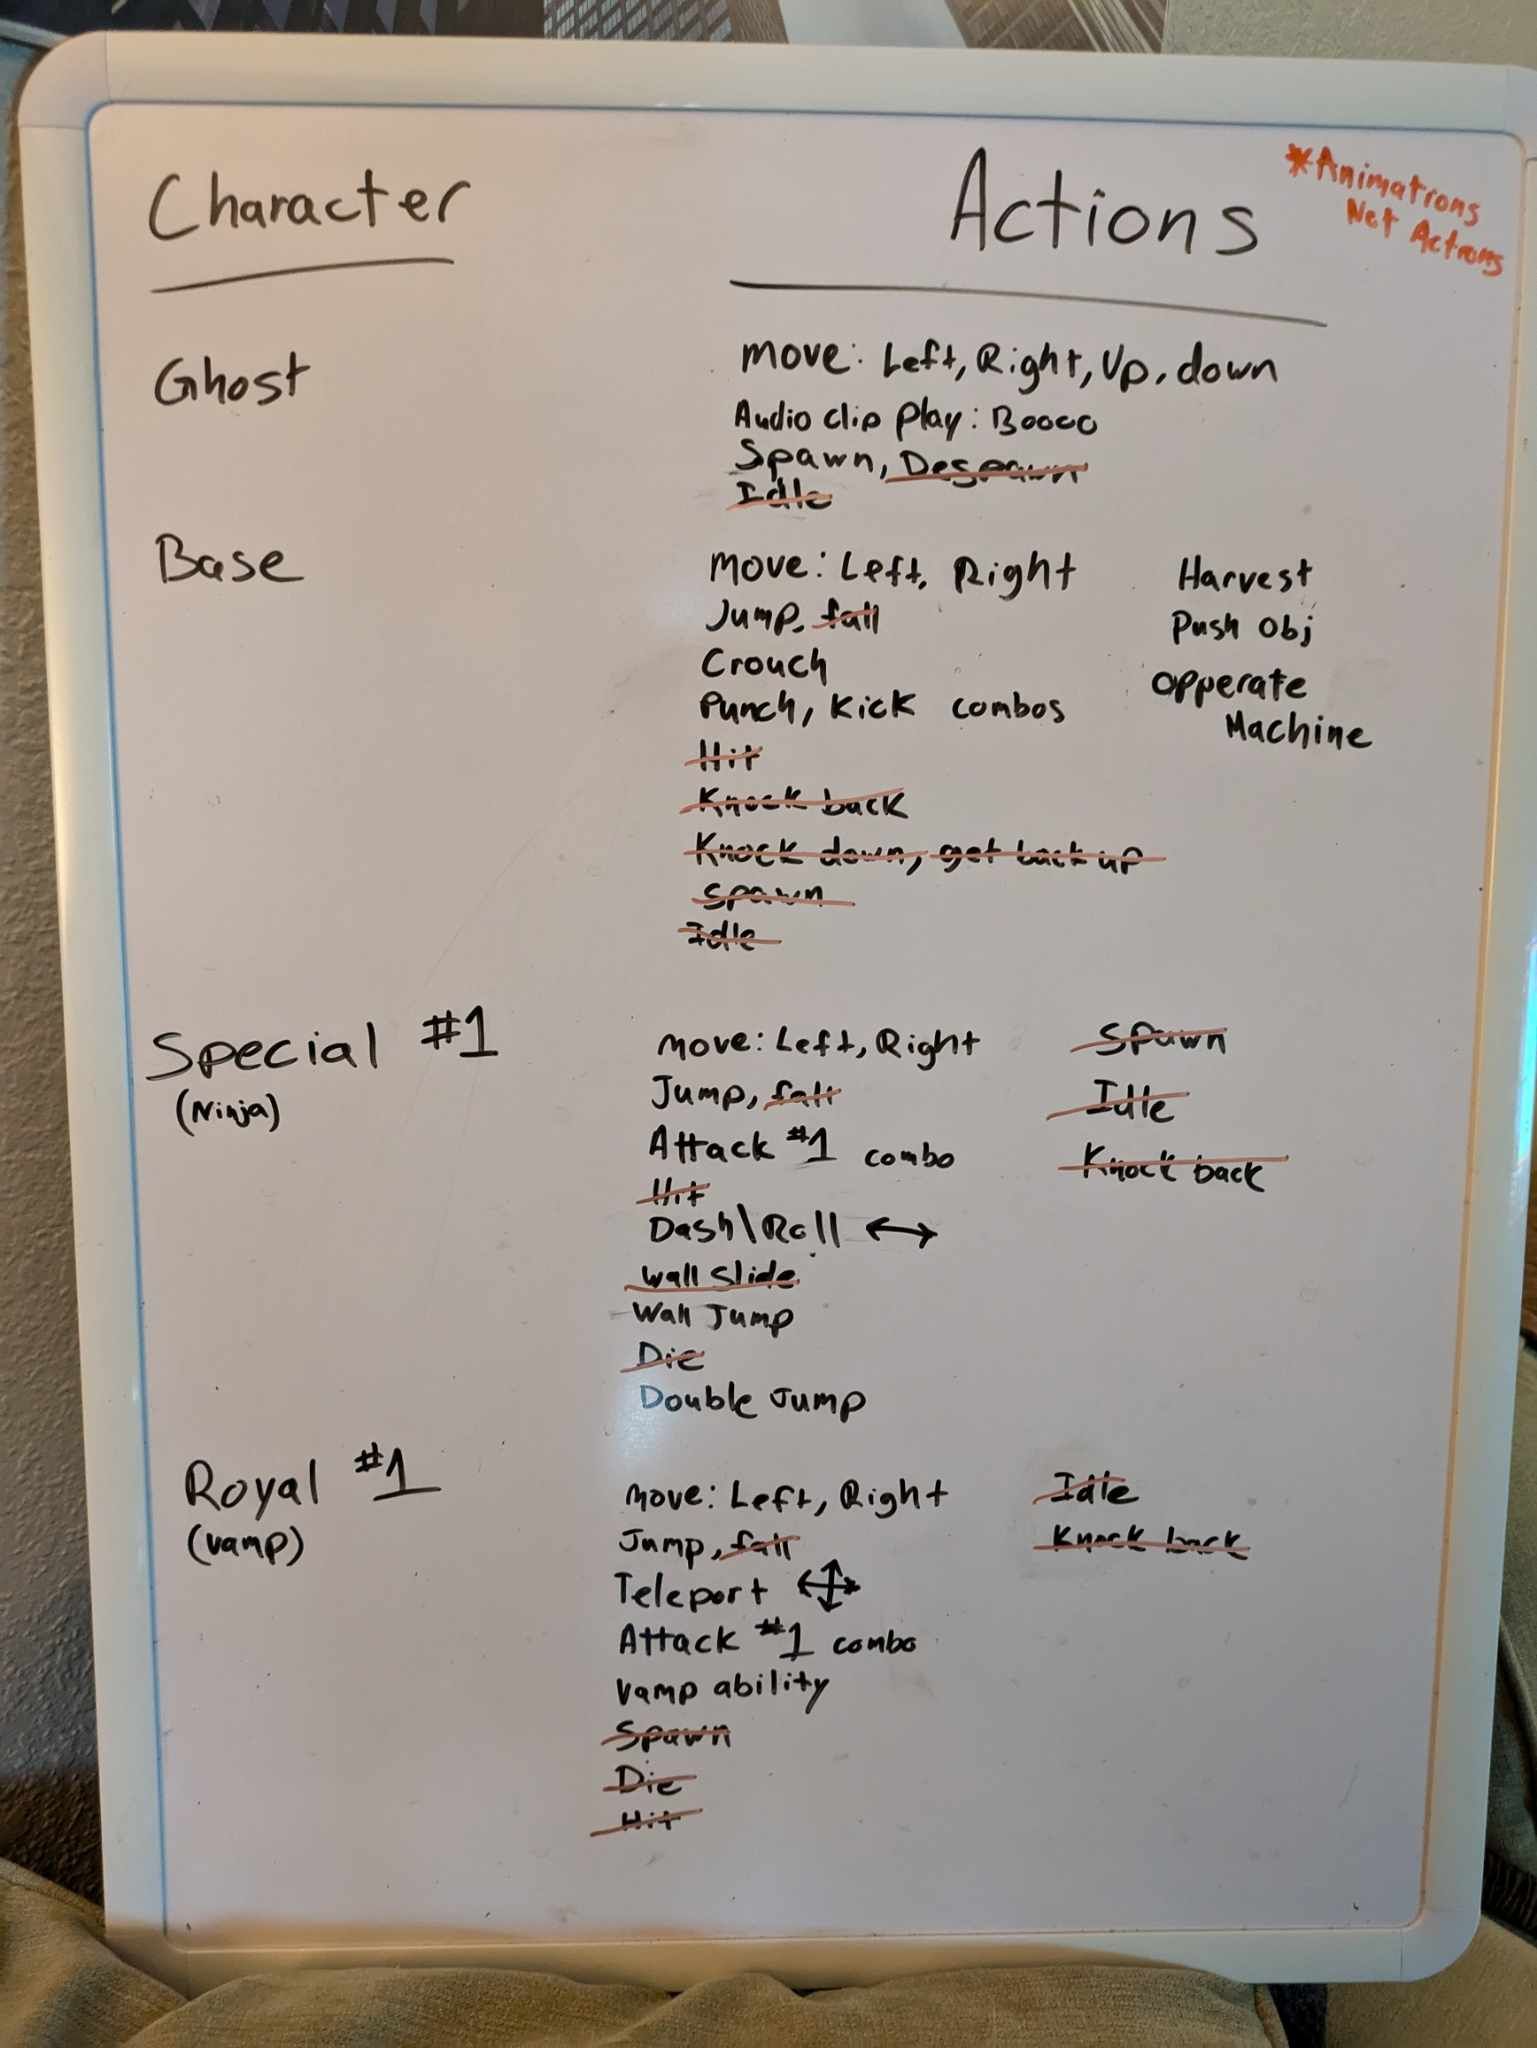 Character
Actions
*Animations
Not Actions
Ghost
move: Left, Right, Up, down
Audio clip play: Boooo
Spawn, Despawn
Idle
Base
move: Left, Right
Jump, fall
Crouch
Punch, Kick combos
Hit
Knock back
Knock down, get back up
Spawn
Idle
Harvest
Push Obj
Opperate
Machine
Special #1
(Ninja)
move: Left, Right
Jump, fall
Attack #1 combo
Hit
Dash\Roll ↔
Wall Slide
Wall Jump
Die
Double Jump
Spawn
Idle
Knock back
Royal #1
(vamp)
move: Left, Right
Jump, fall
Teleport
Attack #1 combo
Vamp ability
Spawn
Die
Hit
Idle
Knock back